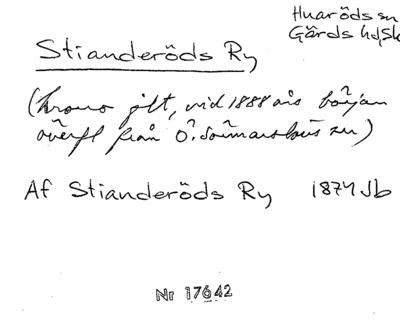 Huaröds sn
Gärds hd, Sk
Stianderöds Ry
(Krono jilt, vid 1888 års början
överfl från Ö. Sönnarslövs sn)
Af Stianderöds Ry 1874 Jb
Nr 17642